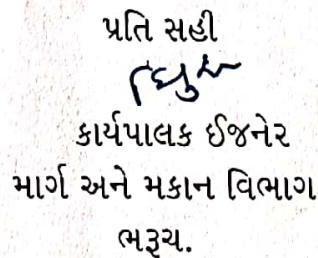 પ્રતિ સહી
કાર્યપાલક ઈજનેર
માર્ગ અને મકાન વિભાગ
ભરૂચ.